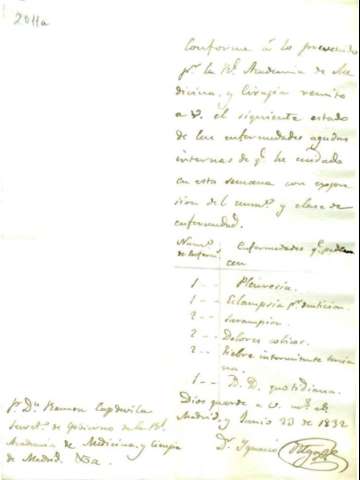 2011a
Conforme á lo prevenido
pr. la Rl. Academia de Me-
dicina, y Cirugia remito
a V. el siguiente estado
de las enfermedades agudas
internas de q. he cuidado
en esta semana con expre-
sion del numo. y clase de
enfermedad.
Numo. Enfermedades q. padecen
1 -- Pleuresia.
1 -- Eclampsia pr. denticion.
2 -- Sarampion.
2 -- Dolores colicos.
2 -- Fiebre intermitente tercia
na.
1 -- D. D. quotidiana.
Dios guarde a V. ms. as.
Madrid, y Junio 23 de 1832
Dr. Ignacio
Sr. Dn. Ramon Capdevila
Secreto. de Gobierno de la Rl.
Academia de Medicina, y Cirugia
de Madrid.